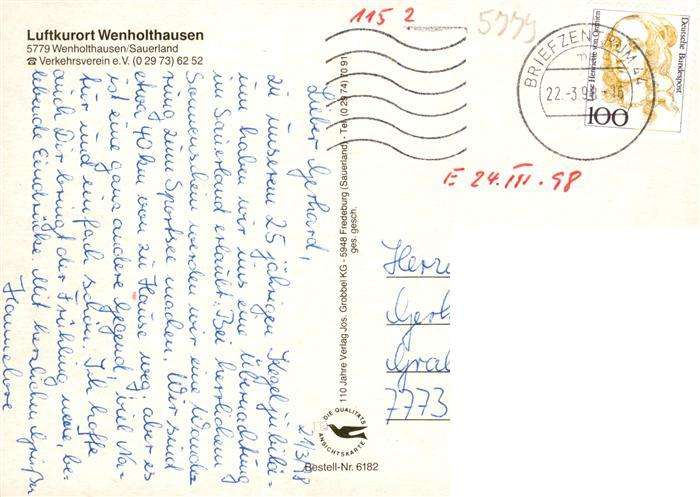 Luftkurort Wenholthausen
5779 Wenholthausen/Sauerland
☎ Verkehrsverein e.V. (0 29 73) 62 52
115 2
BRIEFZENTRUM 44
22.-3.98-16
Deutsche Bundespost
Luise Henriette von Oranien
100
E 24. III. 98
21/3/98
Lieber Gerhard,
zu unserem 25 jährigen Kegeljubilä-
um haben wir uns eine Übernachtung
im Sauerland erlaubt. Bei herrlichem
Sonnenschein werden wir eine Wande-
rung zum Sorpesee machen. Wir sind
etwa 40 km von zu Hause weg, aber es
ist eine ganz andere Gegend, viel Na-
tur und einfach schön. Ich hoffe
auch Dir bringt der Frühling neue, be-
lebende Eindrücke. Mit herzlichen Grüßen
Hannelore
110 Jahre Verlag Jos. Grobbel KG - 5948 Fredeburg (Sauerland) - Tel. (0 29 74) 70 91
ges. gesch.
DIE QUALITÄTS
ANSICHTSKARTE
Bestell-Nr. 6182
Herrn
Gerh
Gra
7773